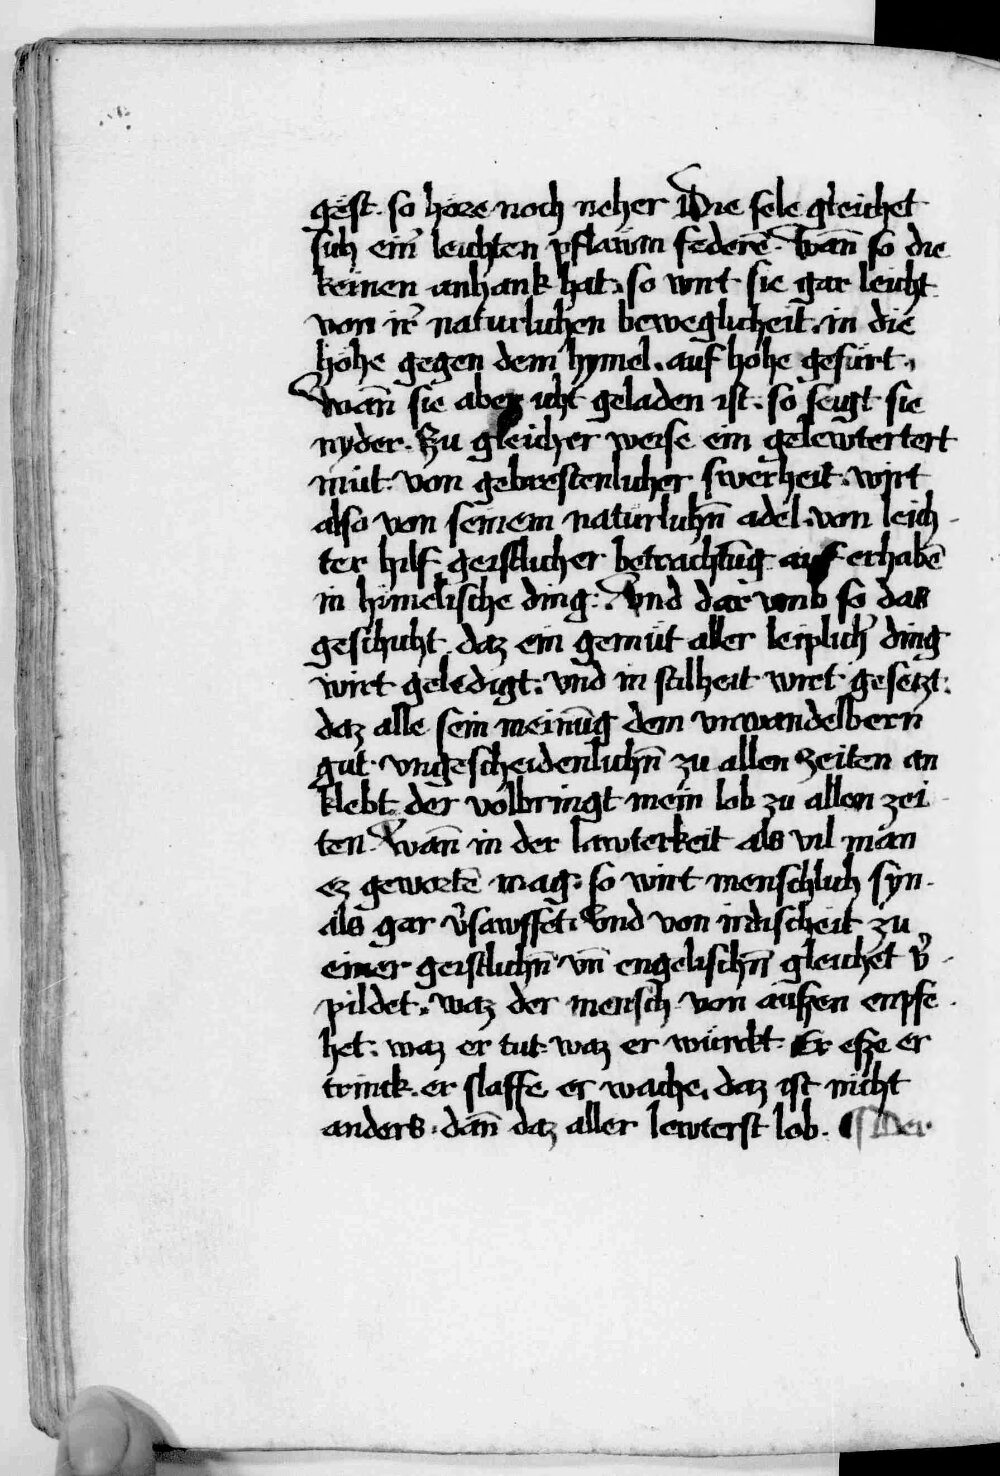 gest. so höre noch neher Die sele gleichet
sich eīr leichten pflaẅm federē. Wañ so die
keinen anhank hat. so wirt sie gar leicht
von ir̄ naturlichen beweglicheit. in die
höhe gegen dem hymel. auf hohe gefürt.
Wañ sie aber icht geladen ist. so seigt sie
nyder. Zu gleicher weise ein gelewtertert
müt. von gebrestenlicher swerheit. wirt
also von seinem natürlichñ adel. von leich
ter hilf geistlicher betrachtūg auf erhabē
in himelische ding. Vnd dar vmb so das
geschicht. daz ein gemüt aller leiplich̄ ding
wirt geledigt. vnd in stilheit wirt gesetzt.
daz alle sein meinūg dem vnwandelbern
gut vngescheidenlichñ zu allen zeiten an
klebt. der volbringt mein lob zu allen zei
ten. Wañ in der lawterkeit als vil man
ez gewortē mag. so wirt menschlich syn.
als gar v̄sawffet. Vnd von irdischeit zu
einer geistlichñ vñ engelischñ gleichet v̄
pildet. waz der mensch von aüßen enpfe
het. waz er tut. waz er würckt. Er eße er
trinck. er slaffe er wache. daz ist nicht
anders. dañ daz aller lewterst lob. ¶ Der